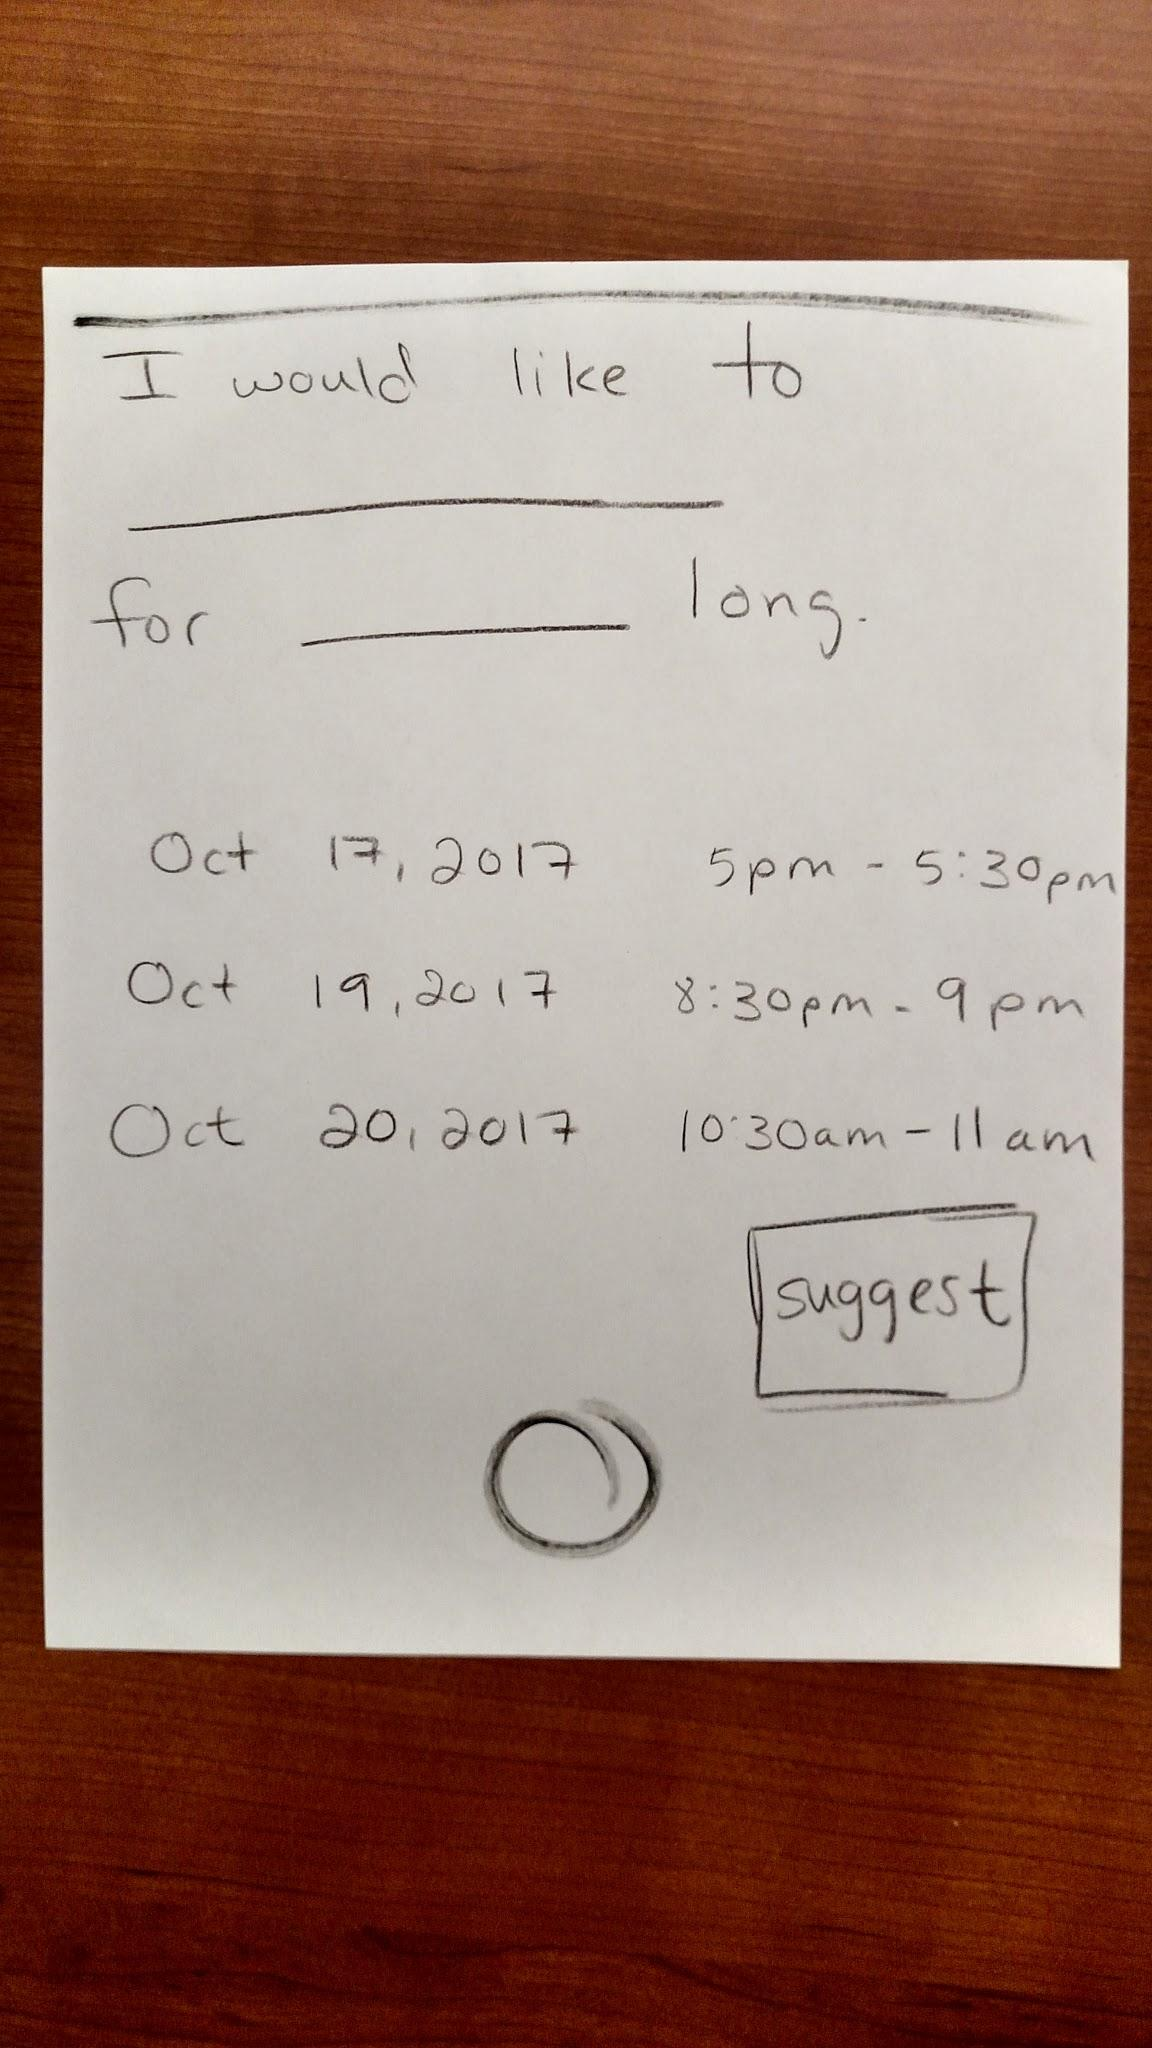 I would like to
for ______ long.
Oct 17, 2017 5pm - 5:30pm
Oct 19, 2017 8:30pm - 9pm
Oct 20, 2017 10:30am - 11am
suggest